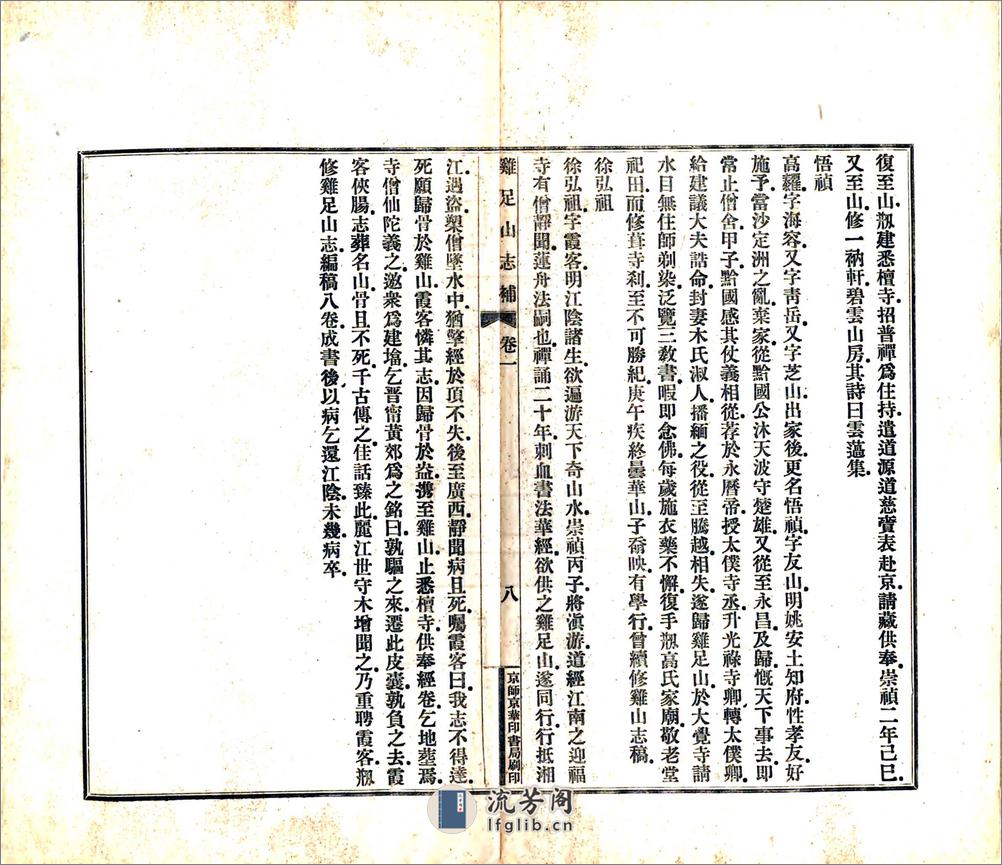 復至山剏建悉檀寺招普禪爲住持遣道源道慈賫表赴京請藏供奉崇禎二年己巳
又至山修一衲軒碧雲山房其詩曰雲薖集
悟禎
高耀字海容又字青岳又字芝山出家後更名悟禎字友山明姚安土知府性孝友好
施予當沙定洲之亂棄家從黔國公沐天波守楚雄又從至永昌及歸慨天下事去即
常止僧舍甲子黔國感其仗義相從荐於永曆帝授太僕寺丞升光祿寺卿轉太僕卿
給建議大夫誥命封妻木氏淑人播緬之役從至騰越相失遂歸雞足山於大覺寺請
水目無住師剃染泛覽三敎書暇即念佛每歲施衣藥不懈復手剏高氏家廟敬老堂
祀田而修葺寺剎至不可勝紀庚午疾終曇華山子奣映有學行曾續修雞山志稿
徐弘祖
徐弘祖字霞客明江陰諸生欲遍游天下奇山水崇禎丙子將滇游道經江南之迎福
寺有僧靜聞蓮舟法嗣也禪誦二十年刺血書法華經欲供之雞足山遂同行行抵湘
雞足山志補 卷一 八 京師京華印書局刷印
江遇盜槊僧墜水中猶擎經於頂不失後至廣西靜聞病且死囑霞客曰我志不得達
死願歸骨於雞山霞客憐其志因歸骨於益携至雞山止悉檀寺供奉經卷乞地塟焉
寺僧仙陀義之邀衆爲建墖乞晋甯黃郊爲之銘曰孰驅之來遷此皮囊孰負之去霞
客俠腸志葬名山骨且不死千古傳之佳話臻此麗江世守木增聞之乃重聘霞客剏
修雞足山志編稿八卷成書後以病乞還江陰未幾病卒
流芳阁
lfglib.cn